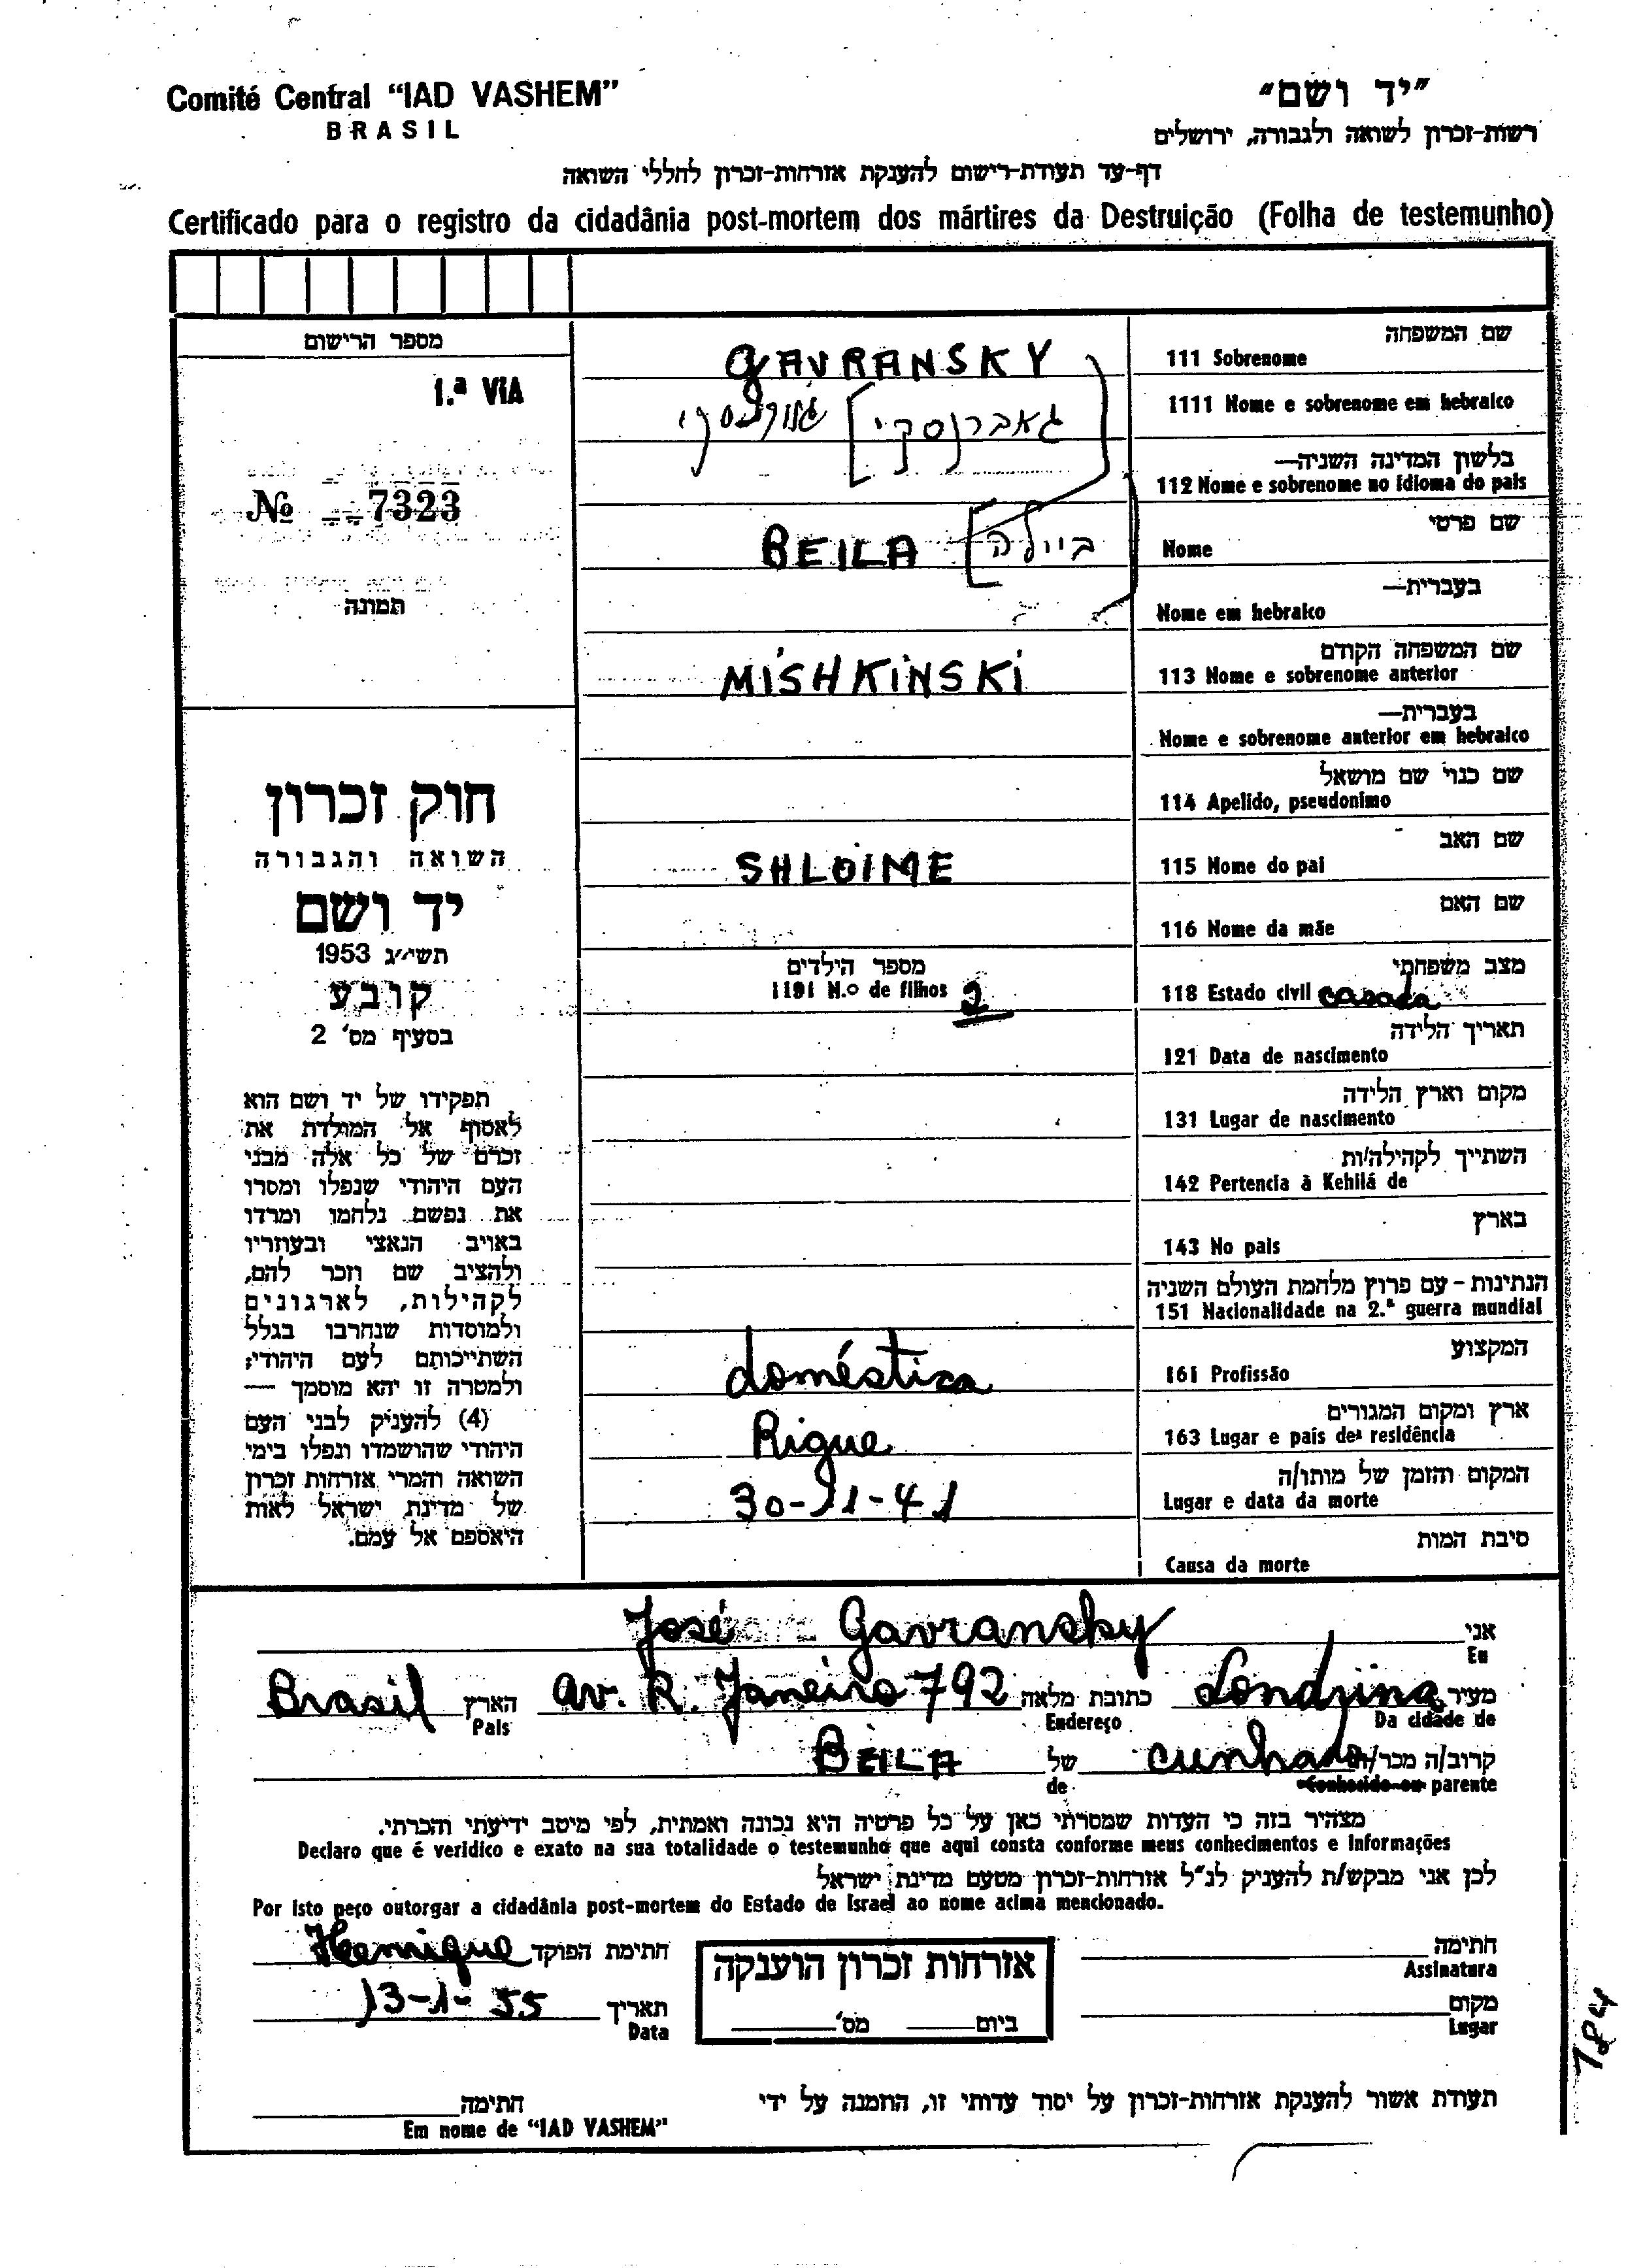 Comité Central “IAD VASHEM”
BRASIL
"יד ושם"
רשות-זכרון לשואה ולגבורה, ירושלים
דף-עד תעודת-רישום להענקת אזרחות-זכרון לחללי השואה
Certificado para o registro da cidadânia post-mortem dos mártires da Destruição (Folha de testemunho)
מספר הרישום
1.ª VIA
№ 7323
תמונה
חוק זכרון
השואה והגבורה
יד ושם
תשי״ג 1953
קובע
בסעיף מס' 2
תפקידו של יד ושם הוא
לאסוף אל המולדת את
זכרם של כל אלה מבני
העם היהודי שנפלו ומסרו
את נפשם נלחמו ומרדו
באויב הנאצי ובעוזריו
ולהציב שם וזכר להם,
לקהילות, לארגונים
ולמוסדות שנחרבו בגלל
השתייכותם לעם היהודי;
ולמטרה זו יהא מוסמך —
(4) להעניק לבני העם
היהודי שהושמדו ונפלו בימי
השואה והמרי אזרחות זכרון
של מדינת ישראל לאות
היאספם אל עמם.
שם המשפחה
111 Sobrenome GAVRANSKY
1111 Nome e sobrenome em hebraico [גאברנסקי]
בלשון המדינה השניה—
112 Nome e sobrenome no idioma do pais
שם פרטי
Nome BEILA [ביילה
בעברית—
Nome em hebraico
שם המשפחה הקודם
113 Nome e sobrenome anterior MISHKINSKI
בעברית—
Nome e sobrenome anterior em hebraico
שם כנוי שם מושאל
114 Apelido, pseudonimo
שם האב
115 Nome do pai SHLOIME
שם האם
116 Nome da mãe
מצב משפחתי
118 Estado civil casada
מספר הילדים
1191 N.º de filhos 2
תאריך הלידה
121 Data de nascimento
מקום וארץ הלידה
131 Lugar de nascimento
השתייך לקהילה/ות
142 Pertencia à Kehilá de
בארץ
143 No pais
הנתינות - עם פרוץ מלחמת העולם השניה
151 Nacionalidade na 2.ª guerra mundial
המקצוע
161 Profissão doméstica
ארץ ומקום המגורים
163 Lugar e pais de residência Rigue
המקום והזמן של מותו/ה
Lugar e data da morte 30-11-41
סיבת המות
Causa da morte
אני
Eu José Gavransky
מעיר Londrina כתובת מלאה av. R. Janeiro 792 הארץ Brasil
Da cidade de Endereço Pais
קרוב/ה מכר/ה cunhada של BEILA
Conhecido ou parente de
מצהיר בזה כי העדות שמסרתי כאן על כל פרטיה היא נכונה ואמתית, לפי מיטב ידיעתי והכרתי.
Declaro que é veridico e exato na sua totalidade o testemunho que aqui consta conforme meus conhecimentos e informações
לכן אני מבקש/ת להעניק לנ״ל אזרחות-זכרון מטעם מדינת ישראל
Por isto peço outorgar a cidadânia post-mortem do Estado de Israel ao nome acima mencionado.
חתימה
Assinatura
מקום
Lugar
אזרחות זכרון הוענקה
ביום מס'
חתימת הפוקד Henrique
תאריך 13-1-55
Data
184
תעודת אשור להענקת אזרחות-זכרון על יסוד עדותי זו, הוזמנה על ידי
חתימה
Em nome de “IAD VASHEM”